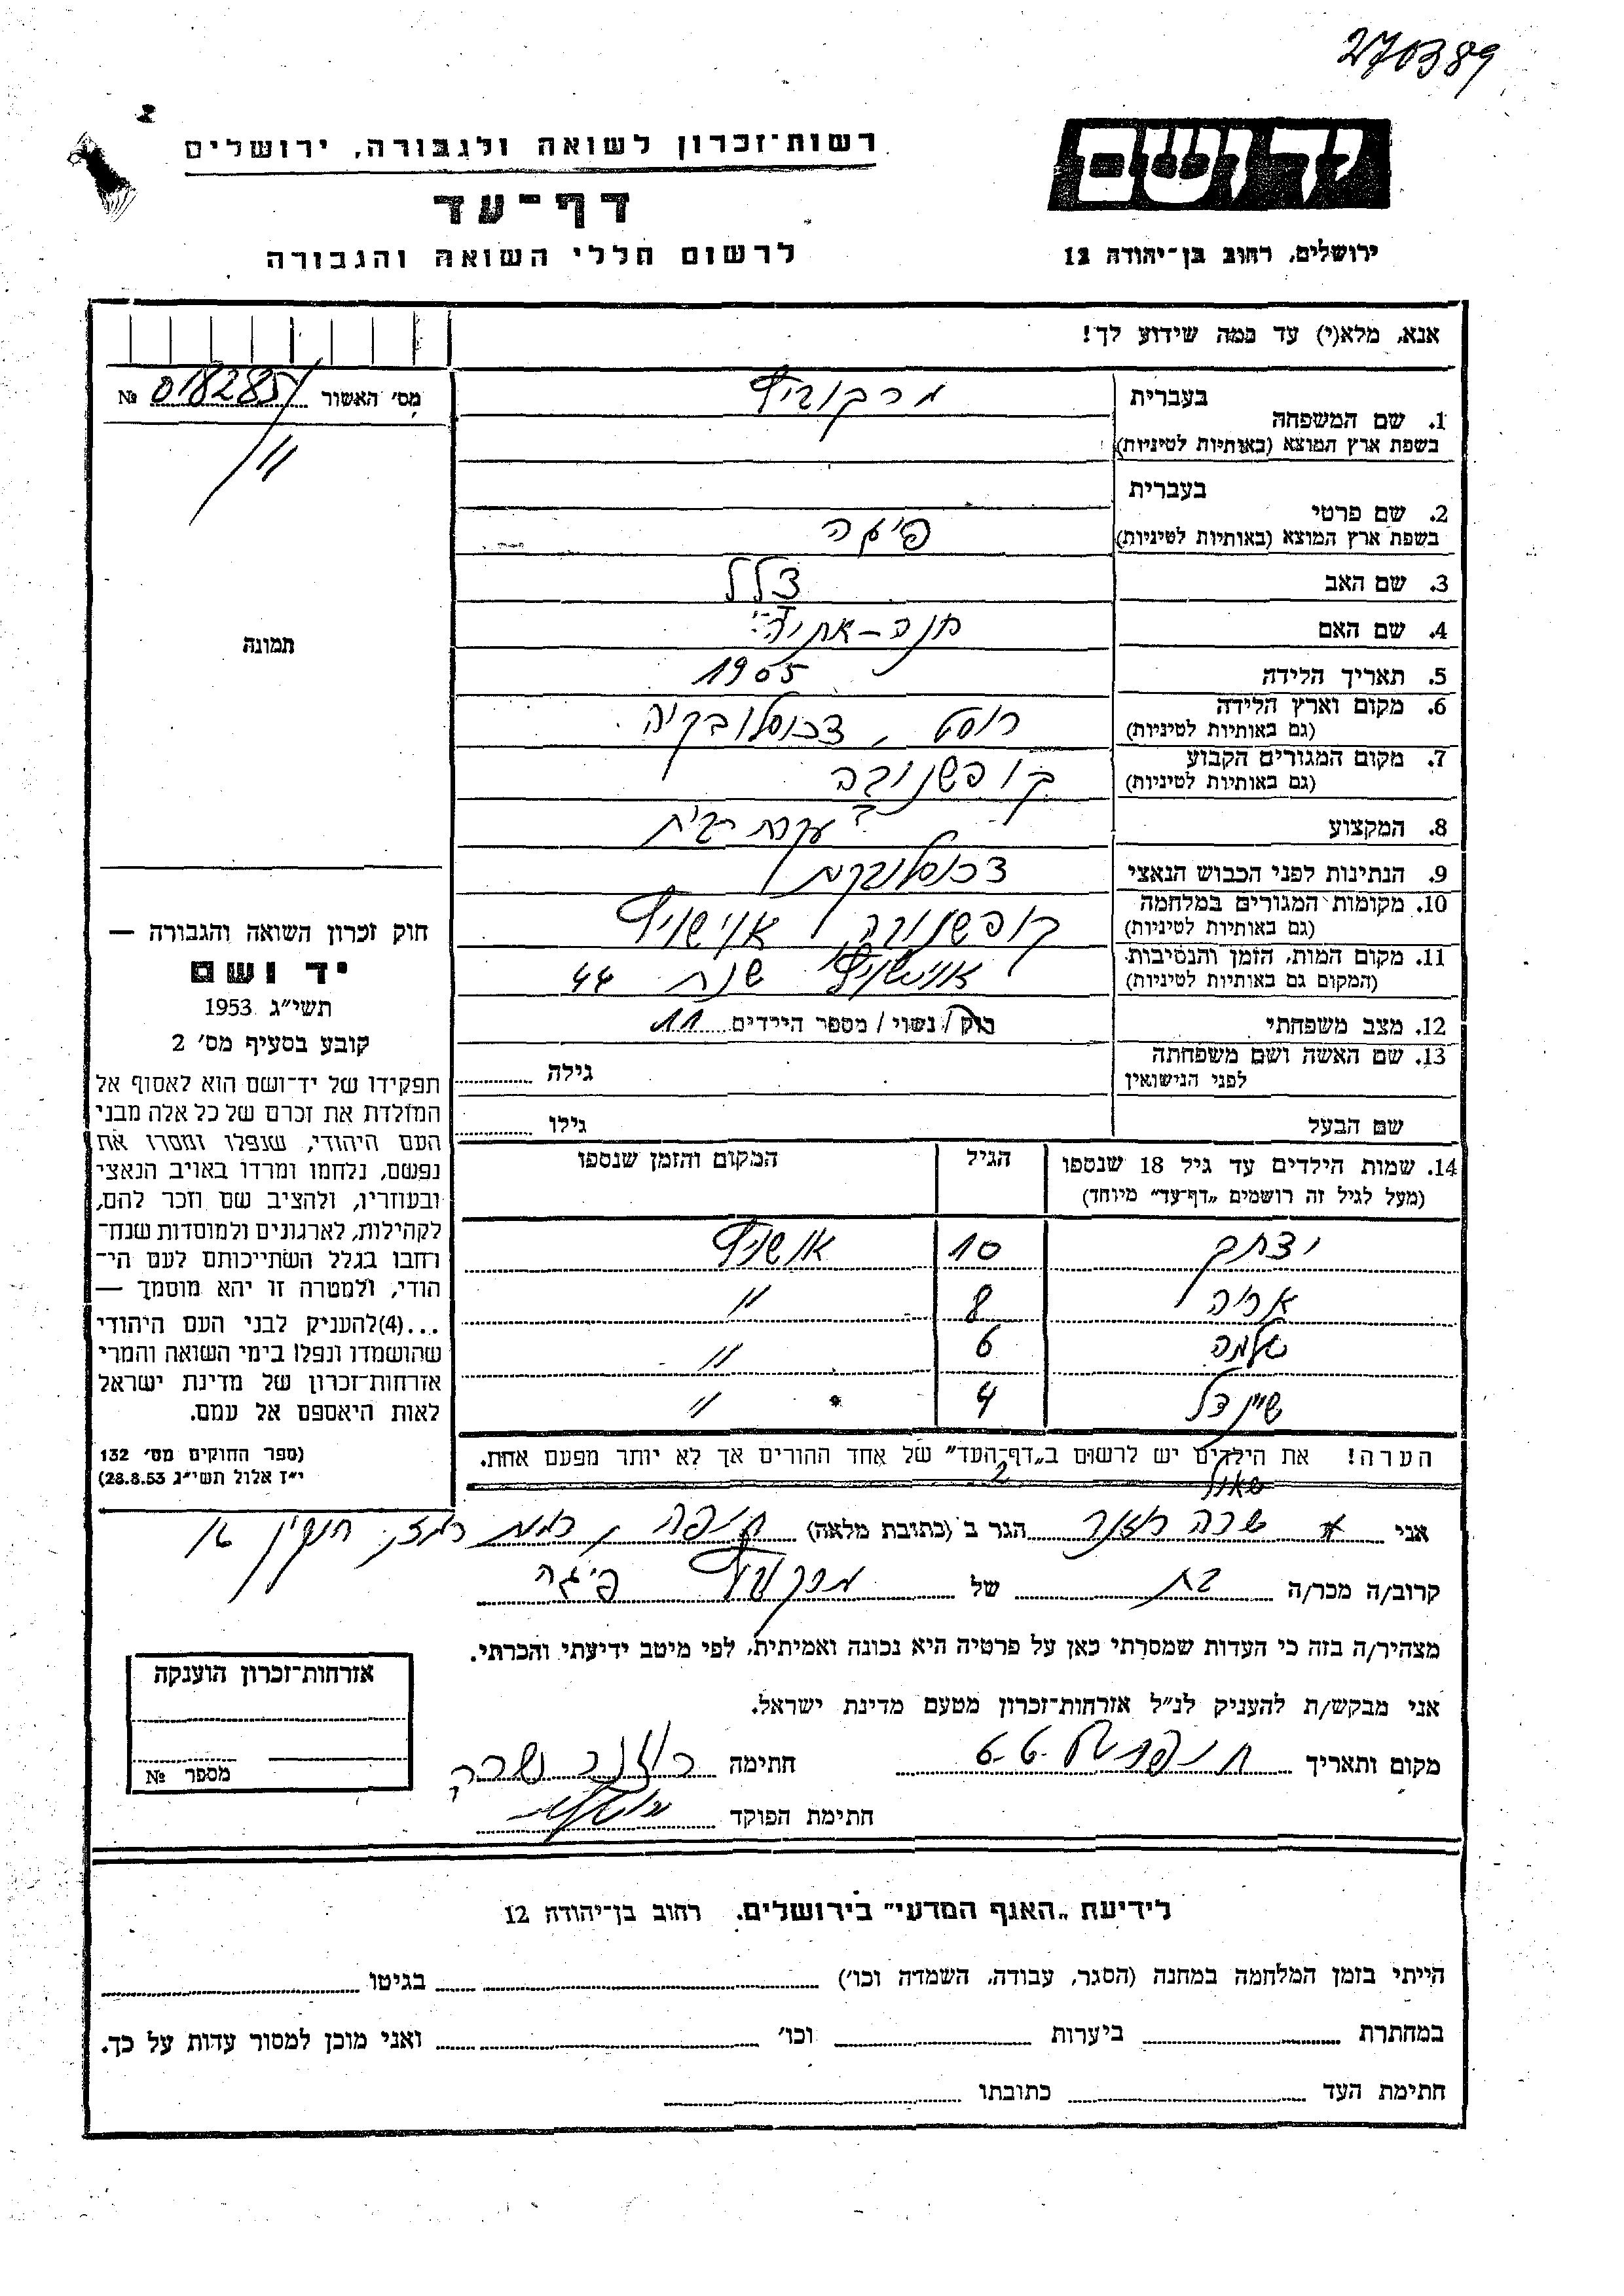 270389
יד ושם
רשות־זכרון לשואה ולגבורה, ירושלים
דף־עד
לרשום חללי השואה והגבורה
ירושלים, רחוב בן־יהודה 12
אנא, מלא(י) עד כמה שידוע לך!
מס' האשור № 018285
1. שם המשפחה
בעברית מרקוביץ
בשפת ארץ המוצא (באותיות לטיניות)
2. שם פרטי
בעברית
בשפת ארץ המוצא (באותיות לטיניות) פיגה
3. שם האב
4. שם האם חנה-
5. תאריך הלידה 1905
6. מקום וארץ הלידה צכוסלובקיה
(גם באותיות לטיניות)
7. מקום המגורים הקבוע קופשנובה
(גם באותיות לטיניות)
8. המקצוע עקרת בית
9. הנתינות לפני הכבוש הנאצי
10. מקומות המגורים במלחמה קופשנובה אוישויץ
(גם באותיות לטיניות)
11. מקום המות, הזמן והנסיבות אוישויץ שנת 44
(המקום גם באותיות לטיניות)
12. מצב משפחתי רוק / נשוי / מספר הילדים 11
13. שם האשה ושם משפחתה
לפני הנישואין גילה
שם הבעל גילו
14. שמות הילדים עד גיל 18 שנספו הגיל המקום והזמן שנספו
(מעל לגיל זה רושמים „דף־עד" מיוחד)
יצחק 10 אושויץ
אריה 8 "
שלמה 6 "
שיינדל 4 "
הערה! את הילדים יש לרשום ב„דף־העד" של אחד ההורים אך לא יותר מפעם אחת.
תמונה
חוק זכרון השואה והגבורה —
יד ושם
תשי"ג 1953
קובע בסעיף מס' 2
תפקידו של יד־ושם הוא לאסוף אל
המולדת את זכרם של כל אלה מבני
העם היהודי, שנפלו ומסרו את
נפשם, נלחמו ומרדו באויב הנאצי
ובעוזריו, ולהציב שם וזכר להם,
לקהילות, לארגונים ולמוסדות שנח־
רחבו בגלל השתייכותם לעם הי־
הודי, ולמטרה זו יהא מוסמך —
...(4)להעניק לבני העם היהודי
שהושמדו ונפלו בימי השואה והמרי
אזרחות־זכרון של מדינת ישראל
לאות היאספם אל עמם.
(ספר החוקים מס' 132
י"ז אלול תשי"ג 28.8.53)
אני שרה הגר ב (כתובת מלאה) חיפה, רמת רמז, חנקין
קרוב/ה מכר/ה בת של מרקוביץ פיגה
מצהיר/ה בזה כי העדות שמסרתי כאן על פרטיה היא נכונה ואמיתית, לפי מיטב ידיעתי והכרתי.
אני מבקש/ת להעניק לנ"ל אזרחות־זכרון מטעם מדינת ישראל.
מקום ותאריך חיפה 6.6. חתימה שרה
חתימת הפוקד
אזרחות־זכרון הוענקה
מספר №
לידיעת „האגף המדעי" בירושלים, רחוב בן־יהודה 12
הייתי בזמן המלחמה במחנה (הסגר, עבודה, השמדה וכו') בגיטו
במחתרת ביערות וכו' ואני מוכן למסור עדות על כך.
חתימת העד כתובתו